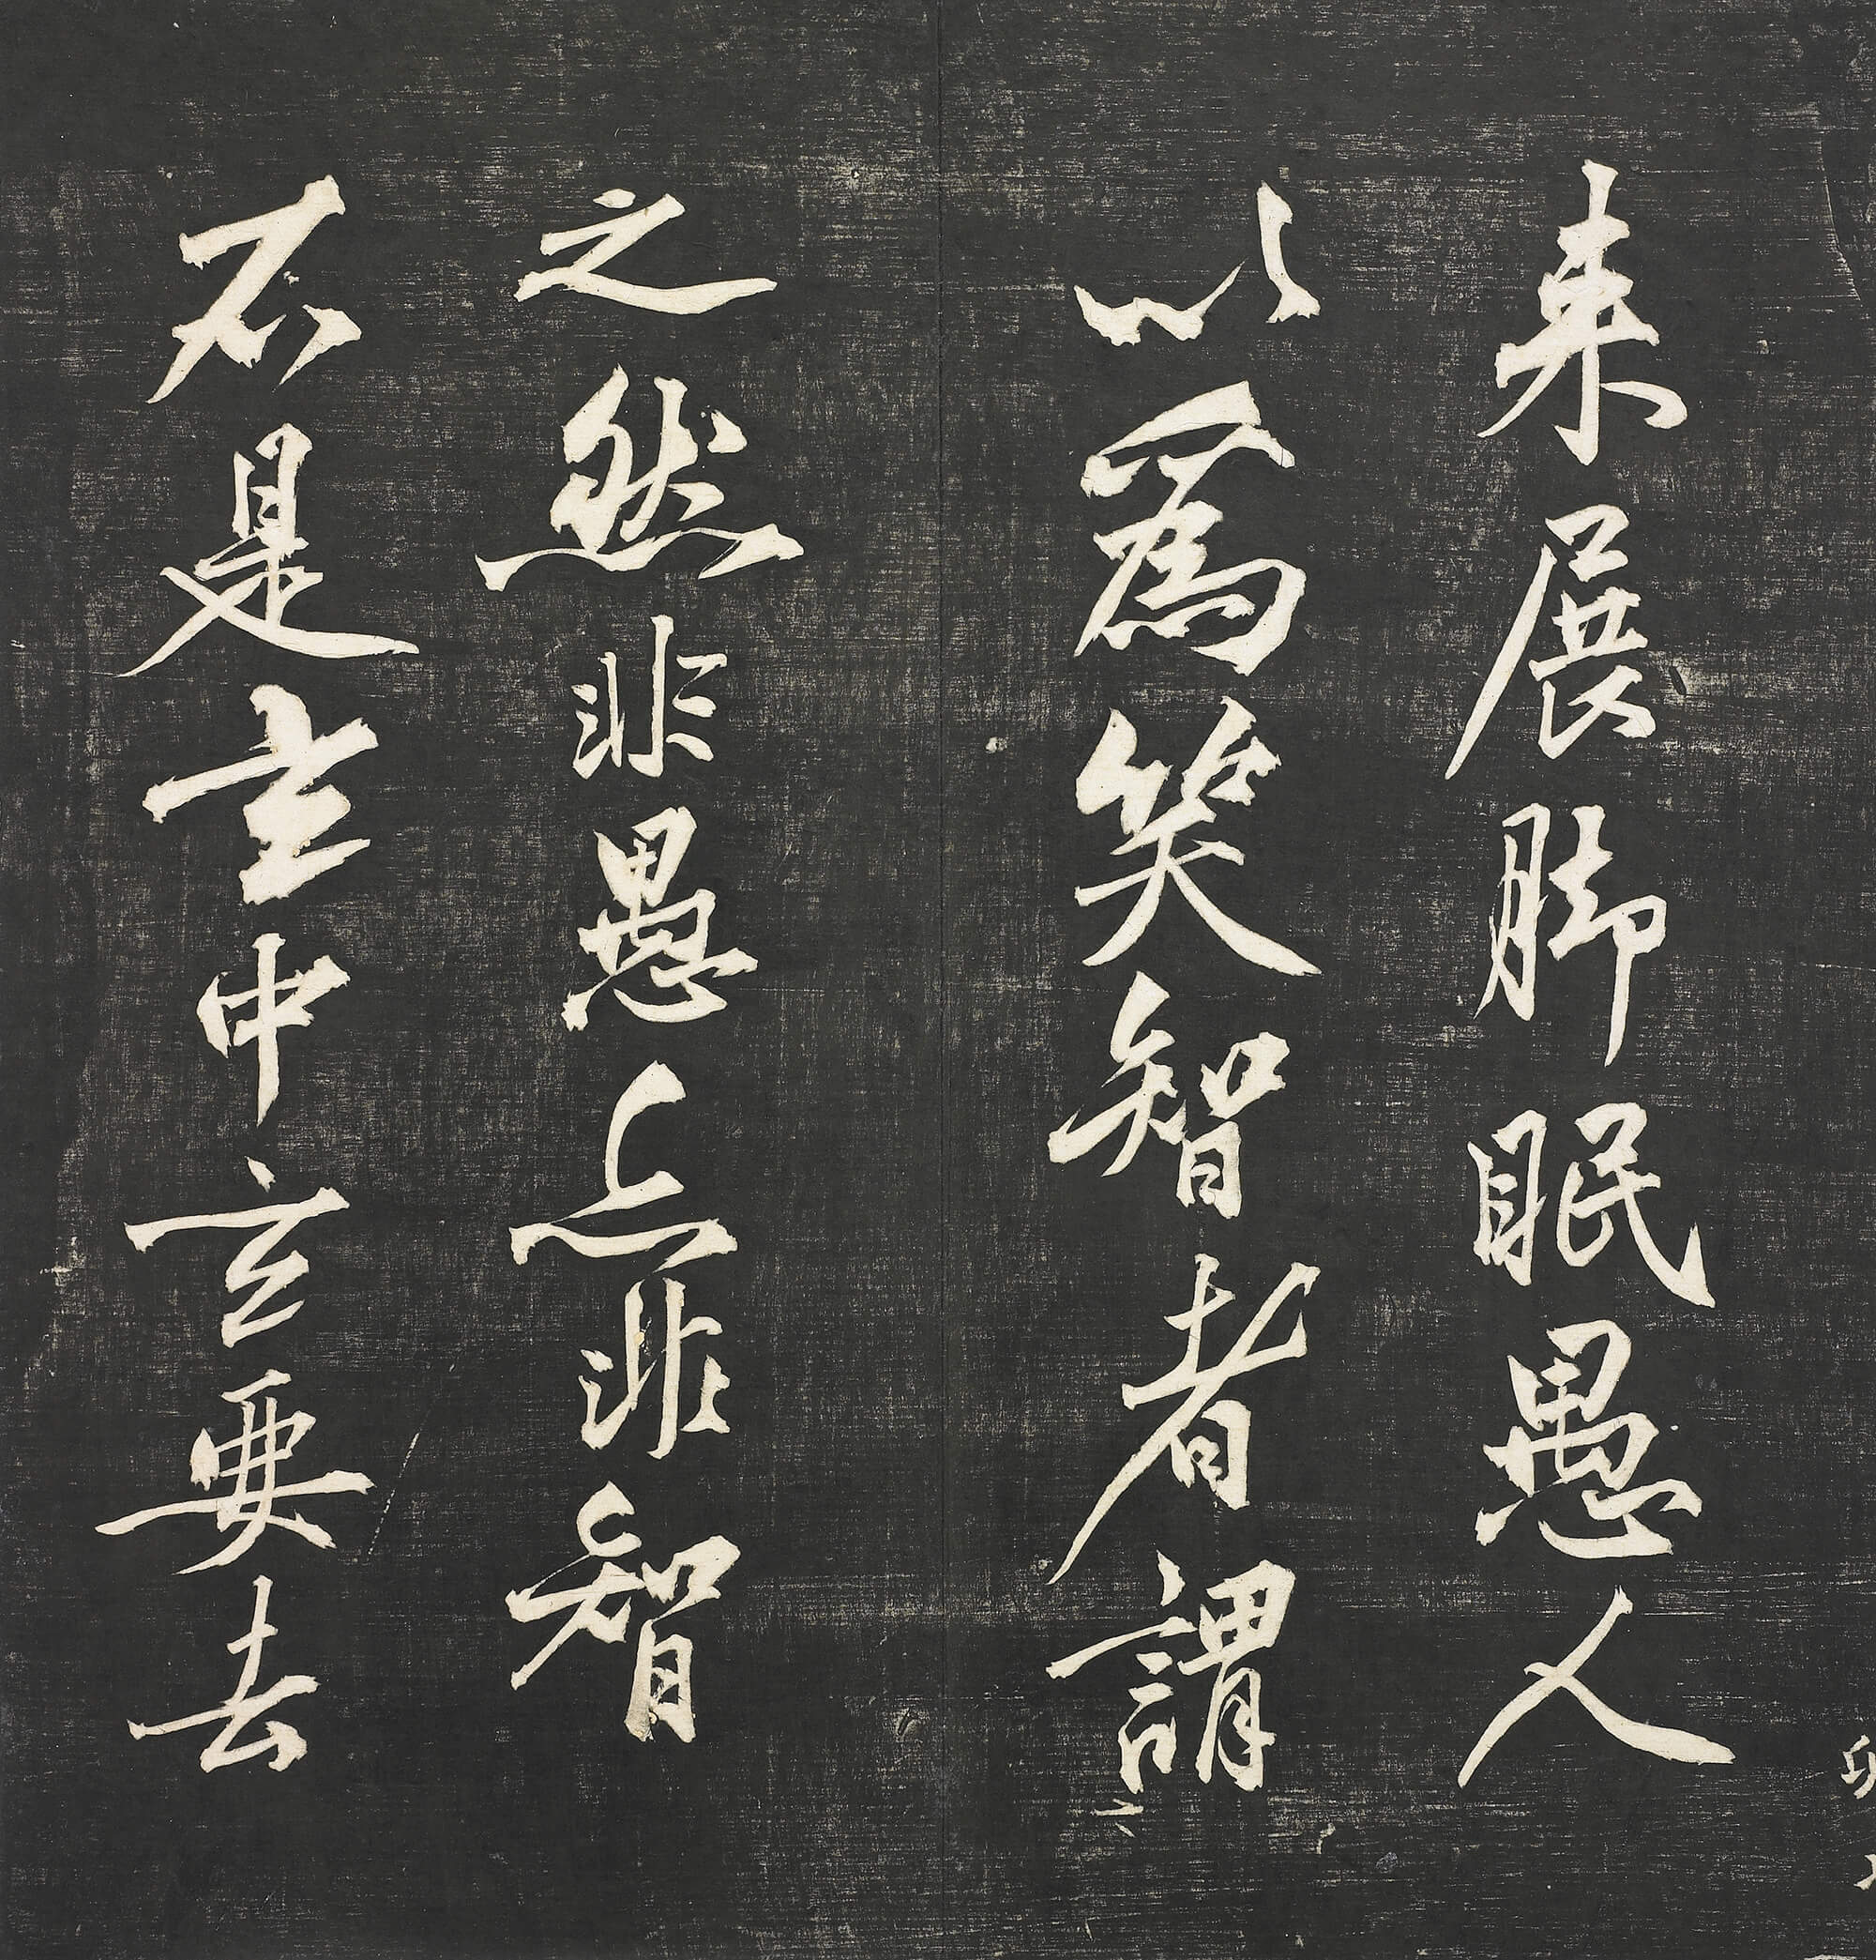 来展脚眠愚人
以為笑智者謂
之然非愚亦非智
不是玄中玄要去
卯